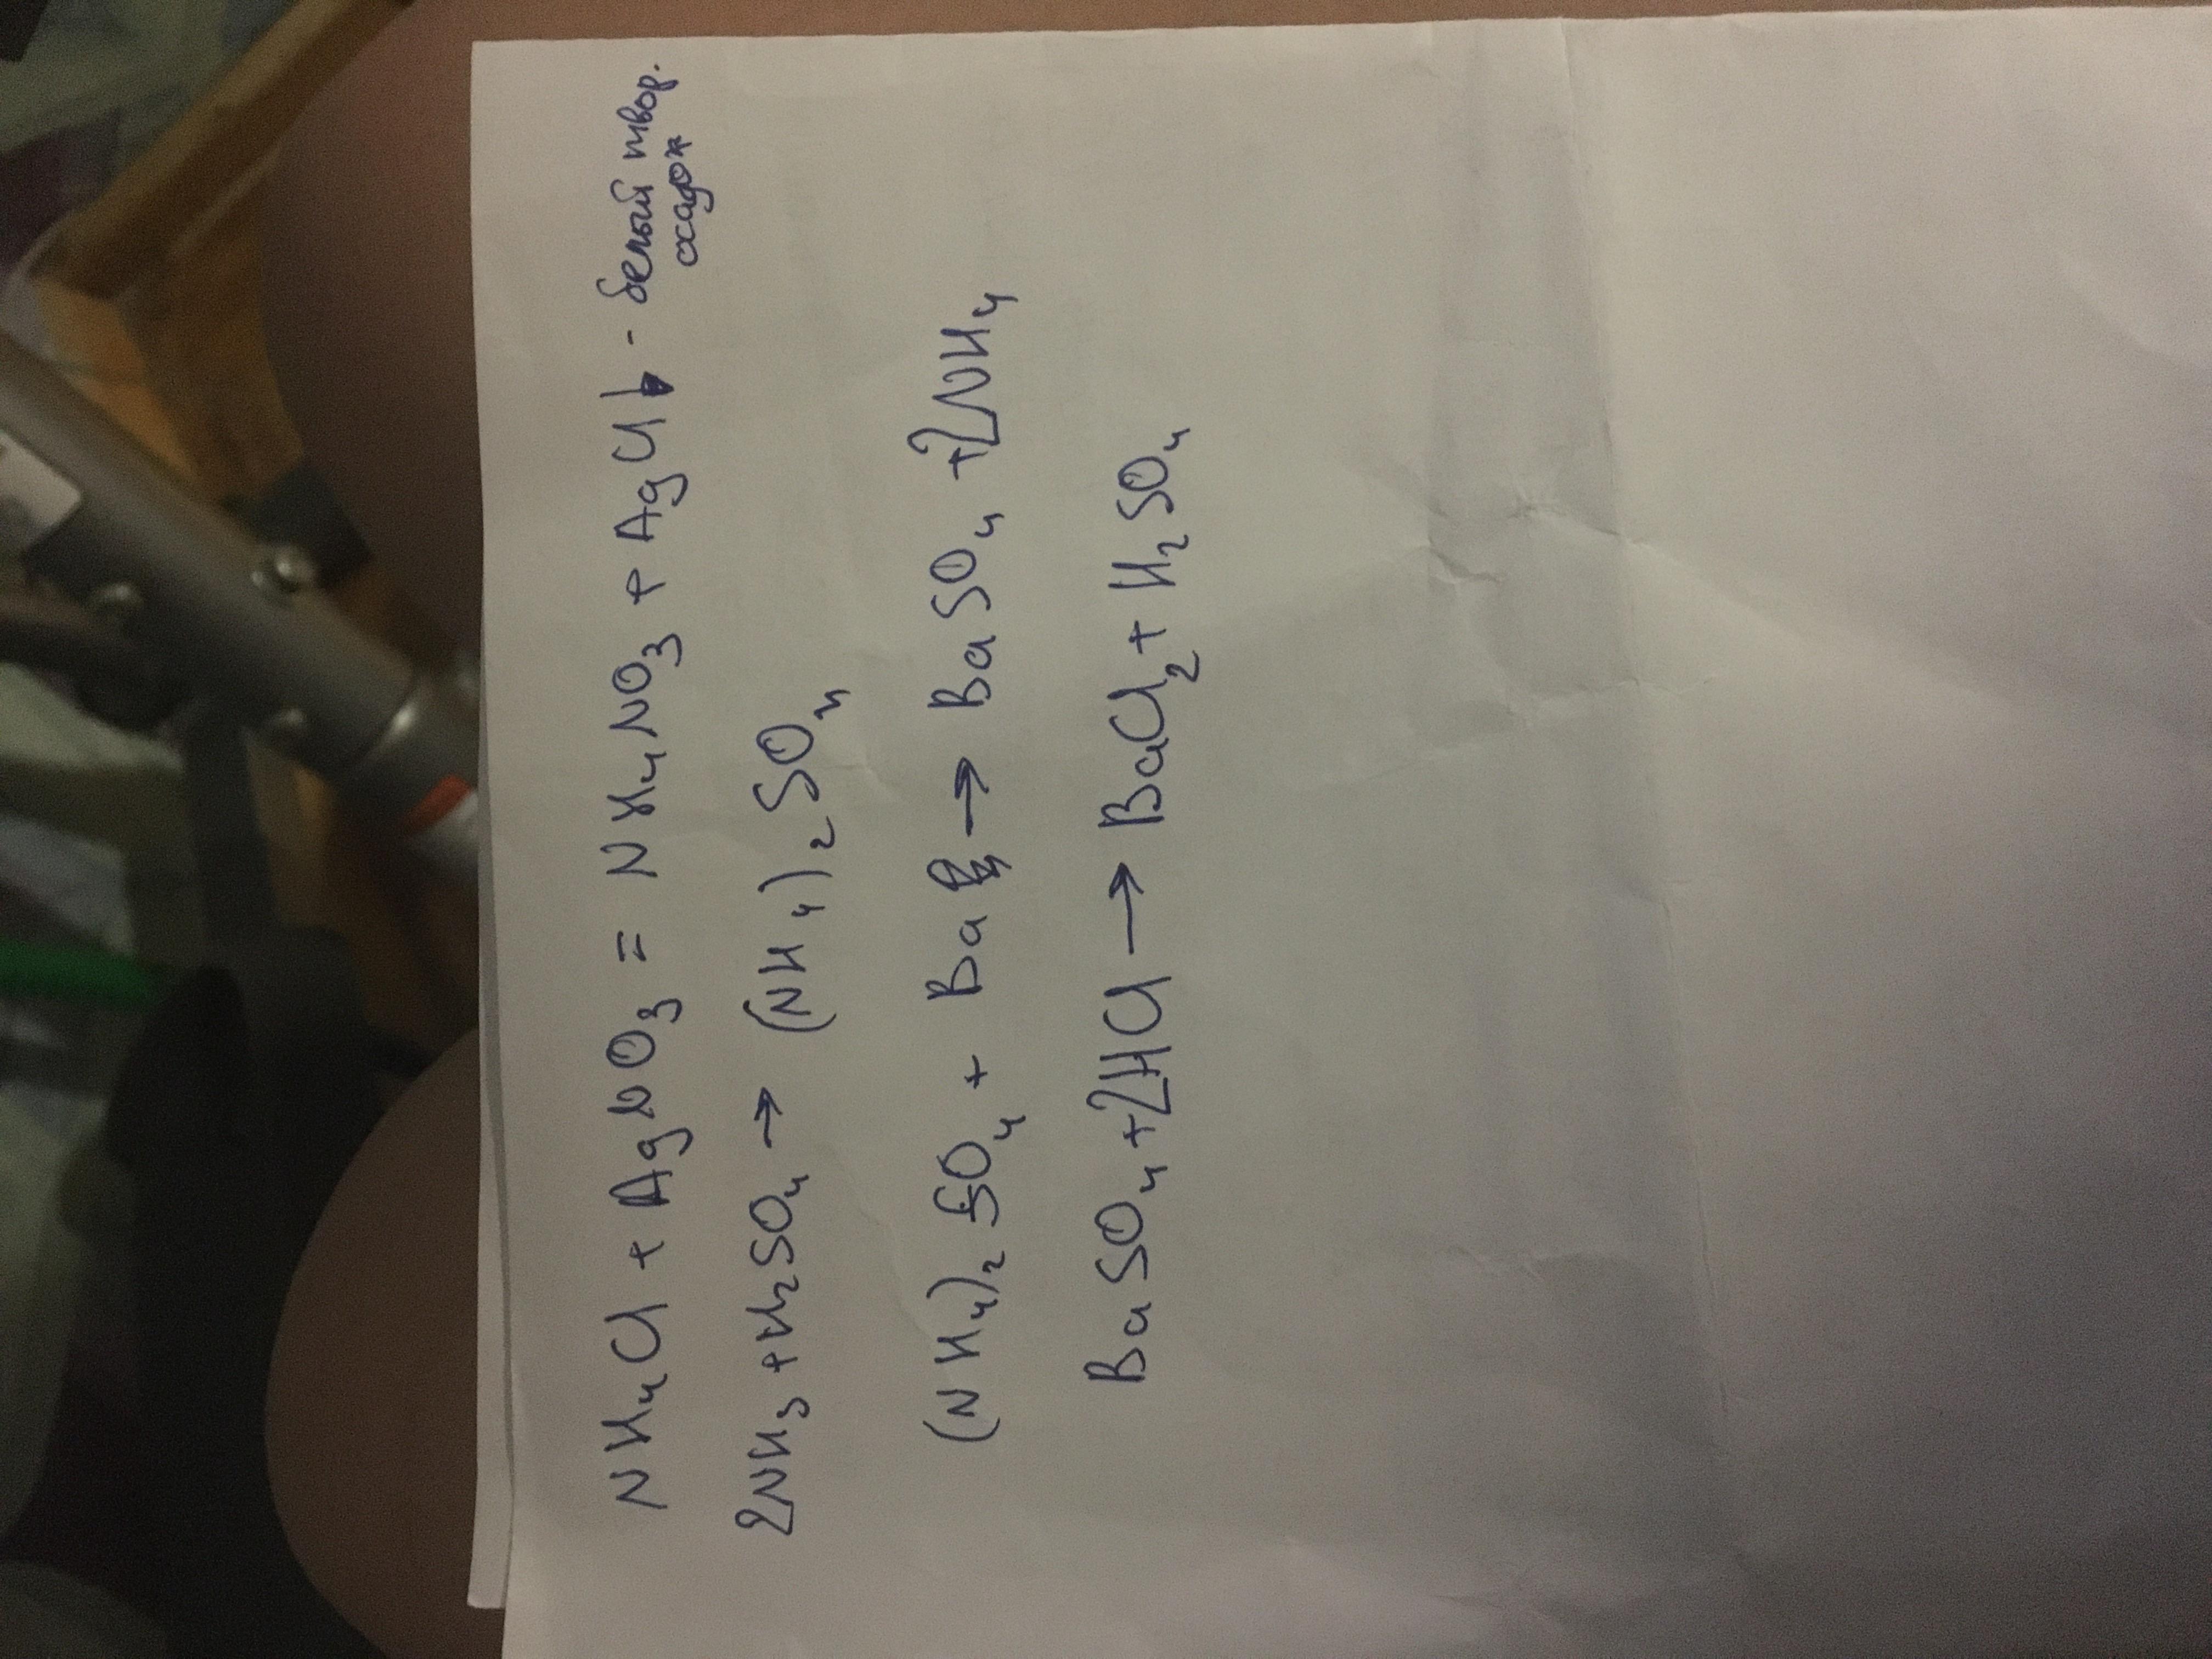 NH₄Cl + AgNO₃ = NH₄NO₃ + AgCl↓ - белый твор.
осадок
2NH₃ + H₂SO₄ → (NH₄)₂SO₄
(NH₄)₂SO₄ + Ba → BaSO₄ + 2NH₄
BaSO₄ + 2HCl → BaCl₂ + H₂SO₄